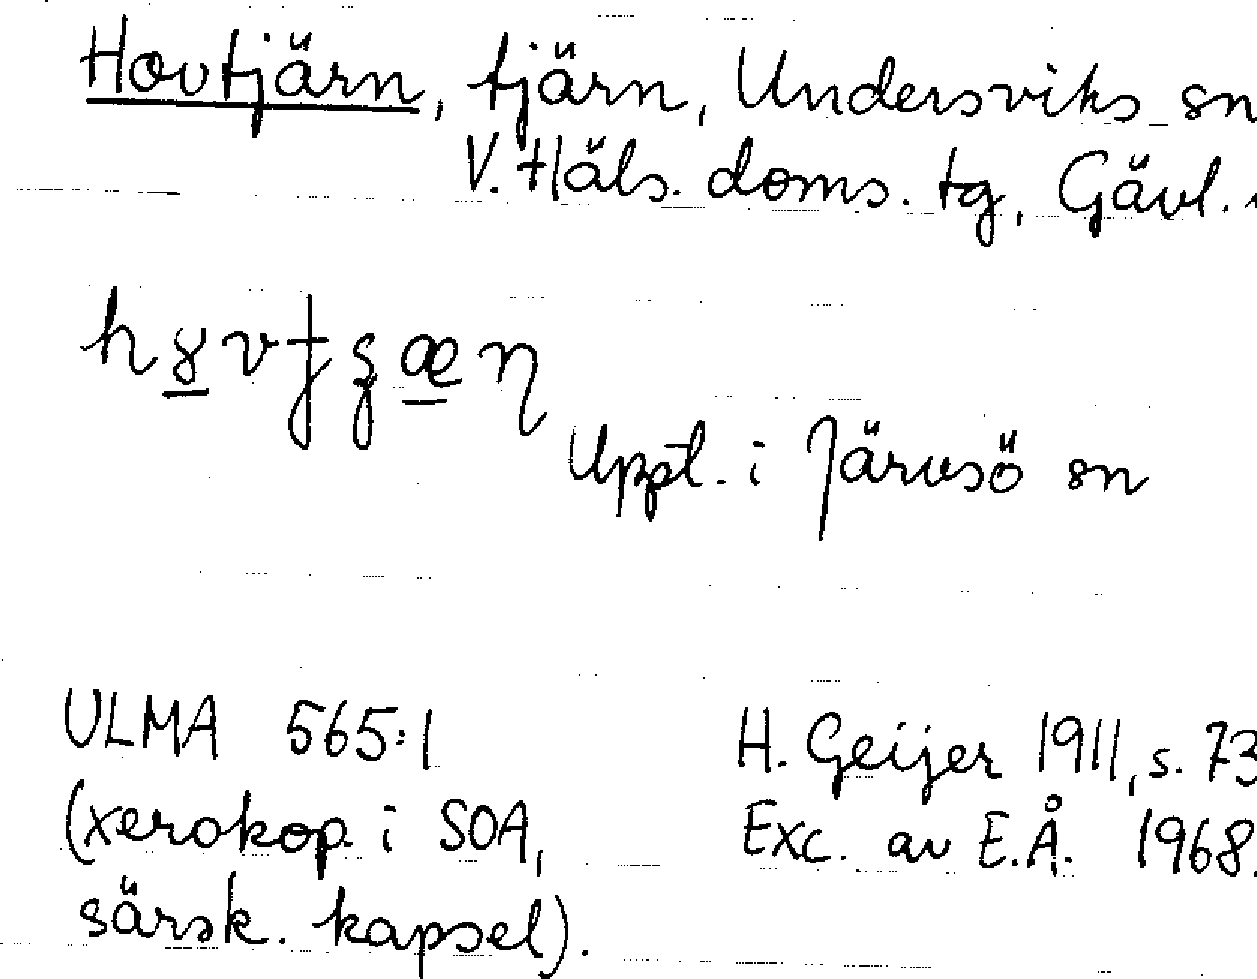 Hovtjärn, tjärn, Undersviks sn
V. Häls. doms. tg, Gävl.
Uppt. i Järvsö sn
ULMA 565:1 H. Geijer 1911, s. 73
(xerokop. i SOA, Exc. av E.Å. 1968.
särsk. kapsel).